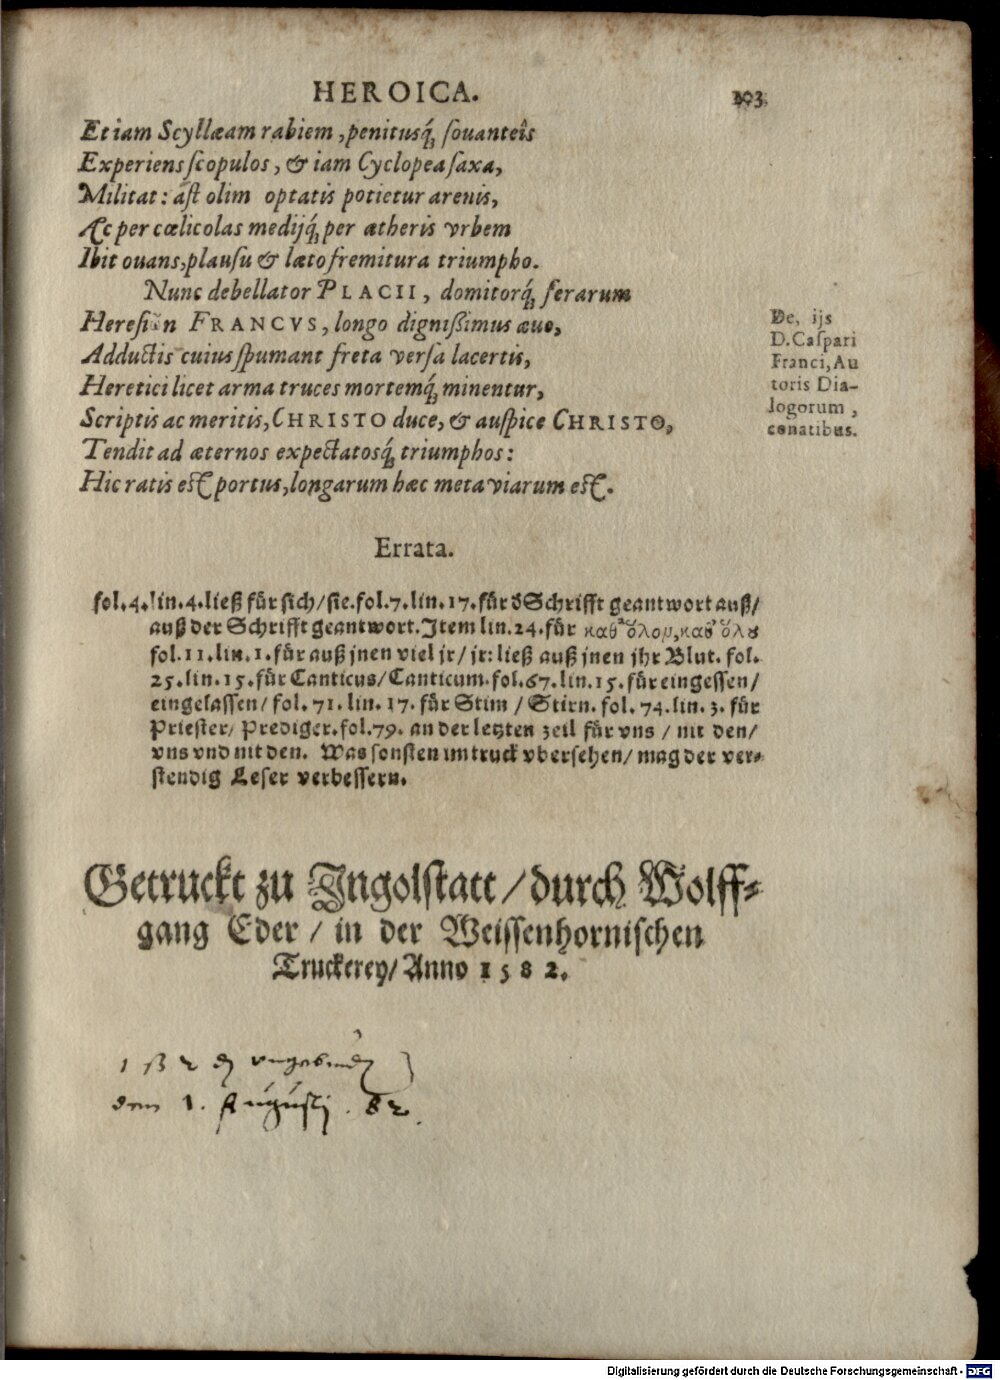 HEROICA. 103
Et iam Scyllæam rabiem, penitusq́; sonanteis
Experiens scopulos, & iam Cyclopea saxa,
Militat: ast olim optatis potietur arenis,
Ac per cœlicolas medijq́; per ætheris vrbem
Ibit ouans, plausu & læto fremitura triumpho.
Nunc debellator PLACII, domitorq́; ferarum
Heresiōn FRANCVS, longo dignißimus æuo,
Adductis cuius spumant freta versa lacertis,
Heretici licet arma truces mortemq́; minentur,
Scriptis ac meritis, CHRISTO duce, & auspice CHRISTO,
Tendit ad æternos expectatosq́; triumphos:
Hic ratis est portus, longarum hæc meta viarum est.
De, ijs
D. Caspari
Franci, Au
toris Dia-
logorum,
conatibus.
Errata.
fol. 4. lin. 4. ließ für sich/ sie. fol. 7. lin. 17. für ď Schrifft geantwort auß/
auß der Schrifft geantwort. Item lin. 24. für
fol. 11. lin. 1. für auß jnen viel jr/ jr: ließ auß jnen jhr Blut. fol.
25. lin. 15. für Canticus/ Canticum. fol. 67. lin. 15. für eingessen/
eingelassen/ fol. 71. lin. 17. für Stim / Stirn. fol. 74. lin. 3. für
Priester/ Prediger. fol. 79. an der letzten zeil für vns / nit den/
vns vnd nit den. Was sonsten im truck vbersehen/ mag der ver-
stendig Leser verbessern.
Getruckt zu Ingolstatt / durch Wolff-
gang Eder / in der Weissenhornischen
Truckerey/ Anno 1582.
den 1. Augustj. 82.
Digitalisierung gefördert durch die Deutsche Forschungsgemeinschaft - DFG